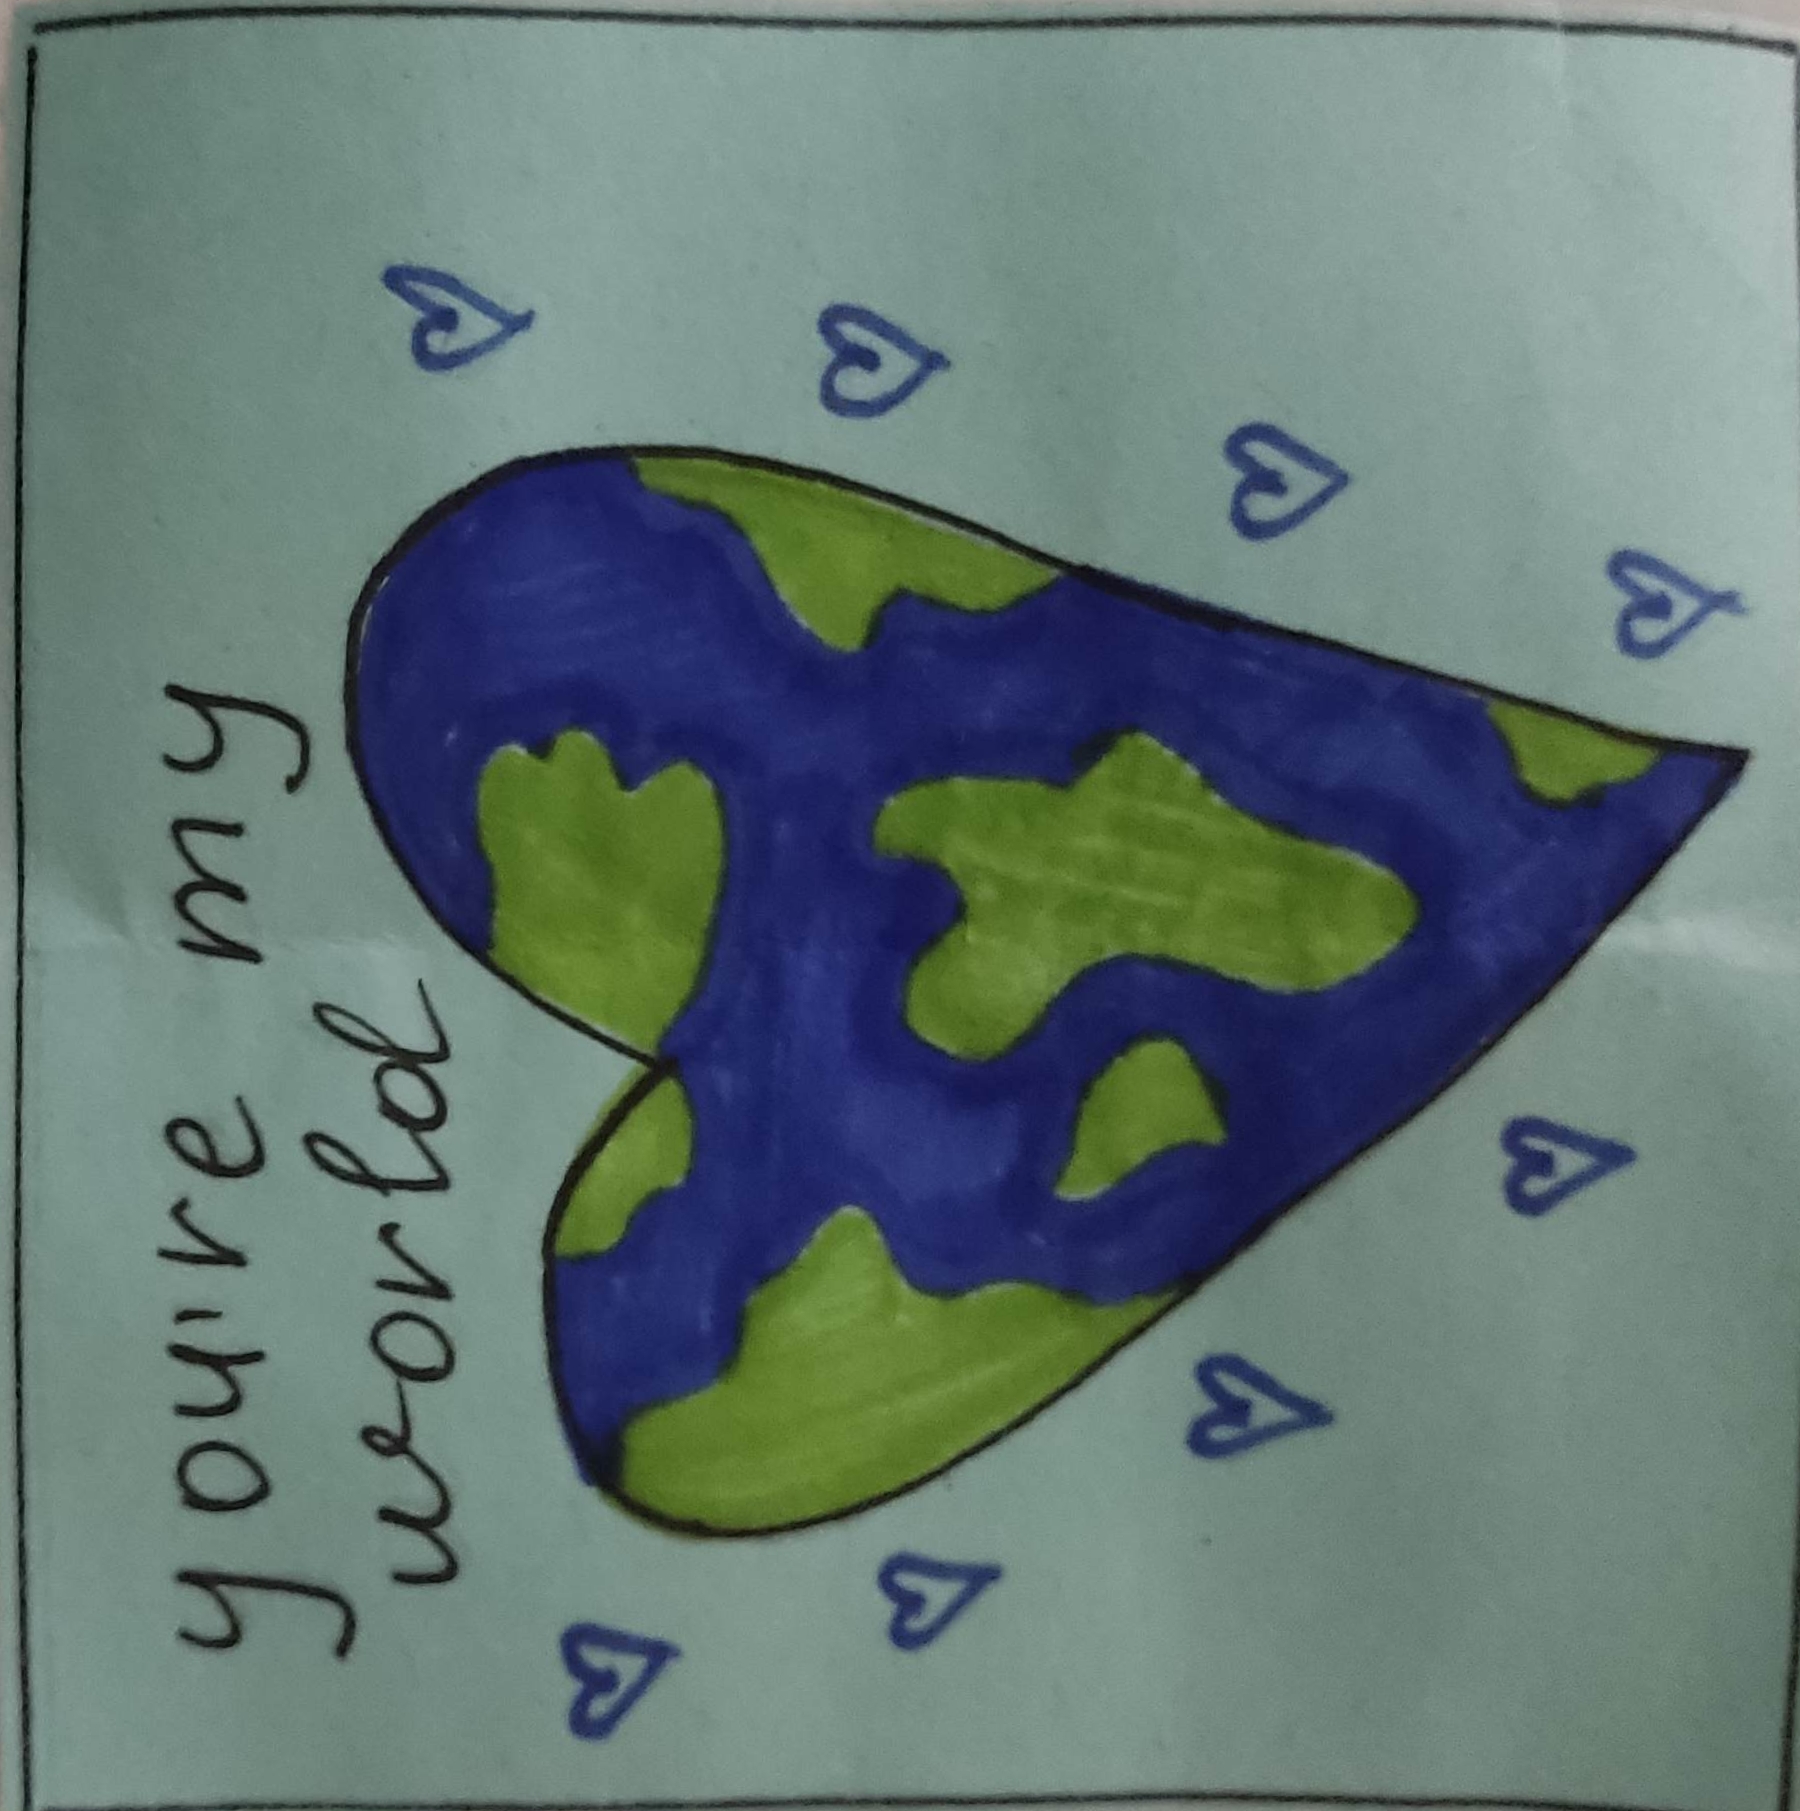 you're my
world